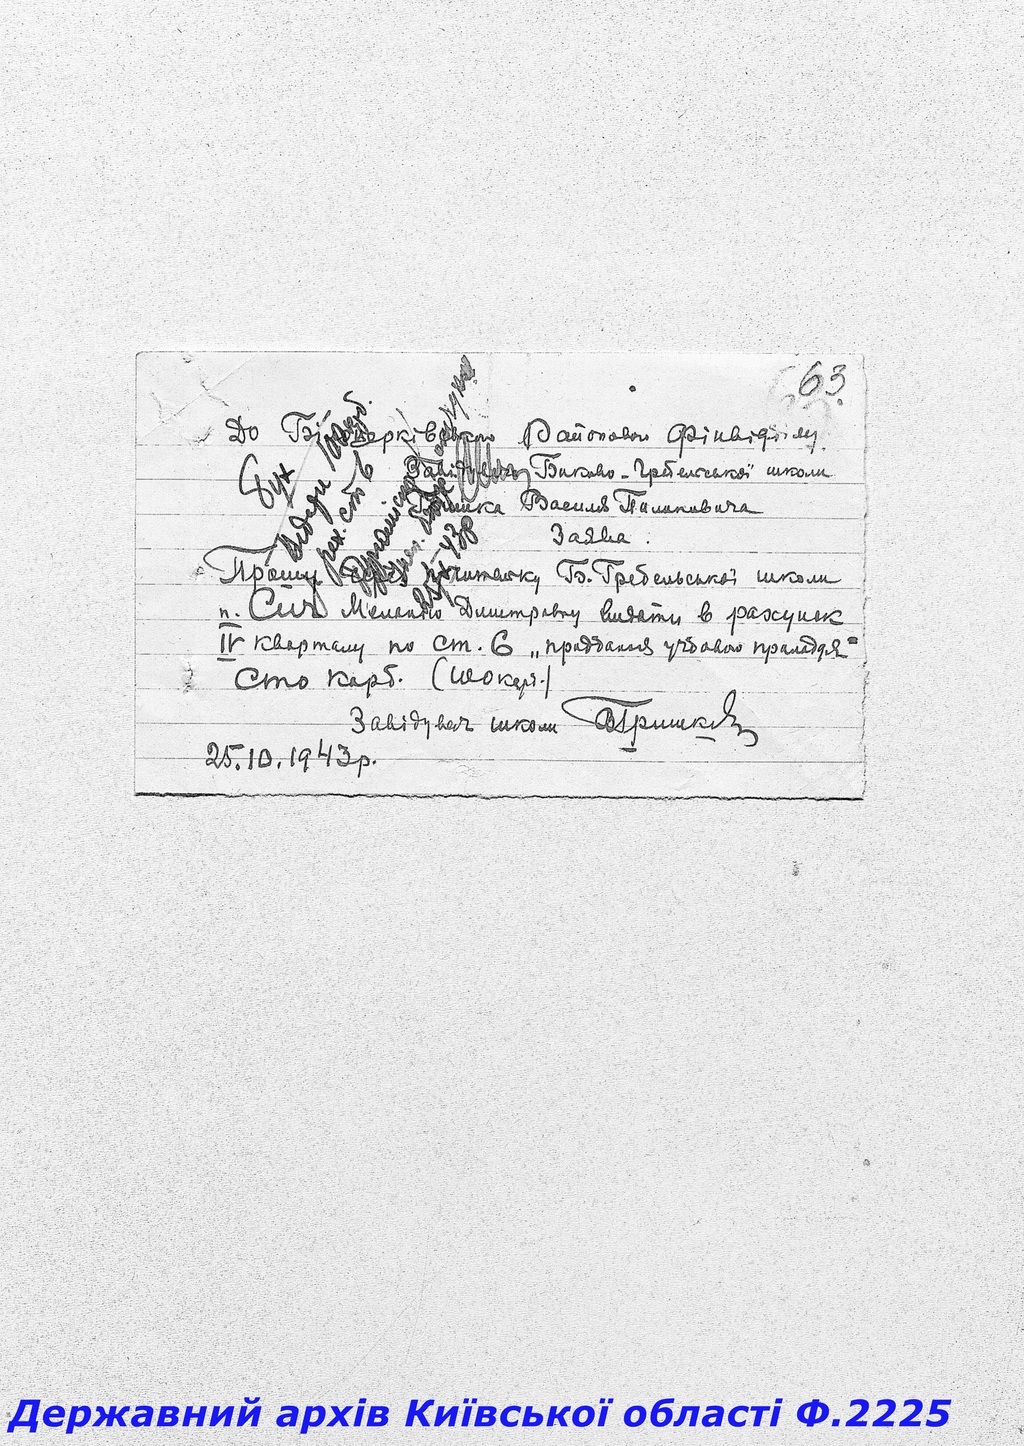 63
До Білоцерківського Районового Фінвідділу
Завідувача Биково-Гребельської школи
Гришка Василя
Заява.
Прошу через учительку Б.Гребельської школи
п. Сич Меланію Дмитрівну видати в рахунок
IV кварталу по ст. 6 „придбання учбового приладдя"
Сто карб. (100 карб.)
Завідувач школи ВГришко
25.10.1943р.
Бух
Видати 100 карб.
рах. ст 6
Державний архів Київської області Ф.2225